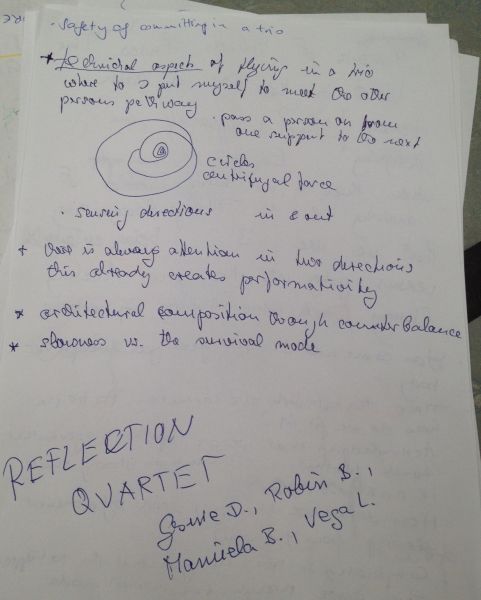 · Safety of committing in a trio
* technical aspect of flying in a trio
where to I put myself to meet the other
persons pathway
· pass a person on from
one support to the next
circles
centrifugal force
· sensing directions in & out
+ there is always attention in two directions
this already creates performativity
* architectural composition through counterbalance
* slowness vs. the survival mode
REFLECTION
QUARTET
D., Robin B.,
Manuela B., Vega L.